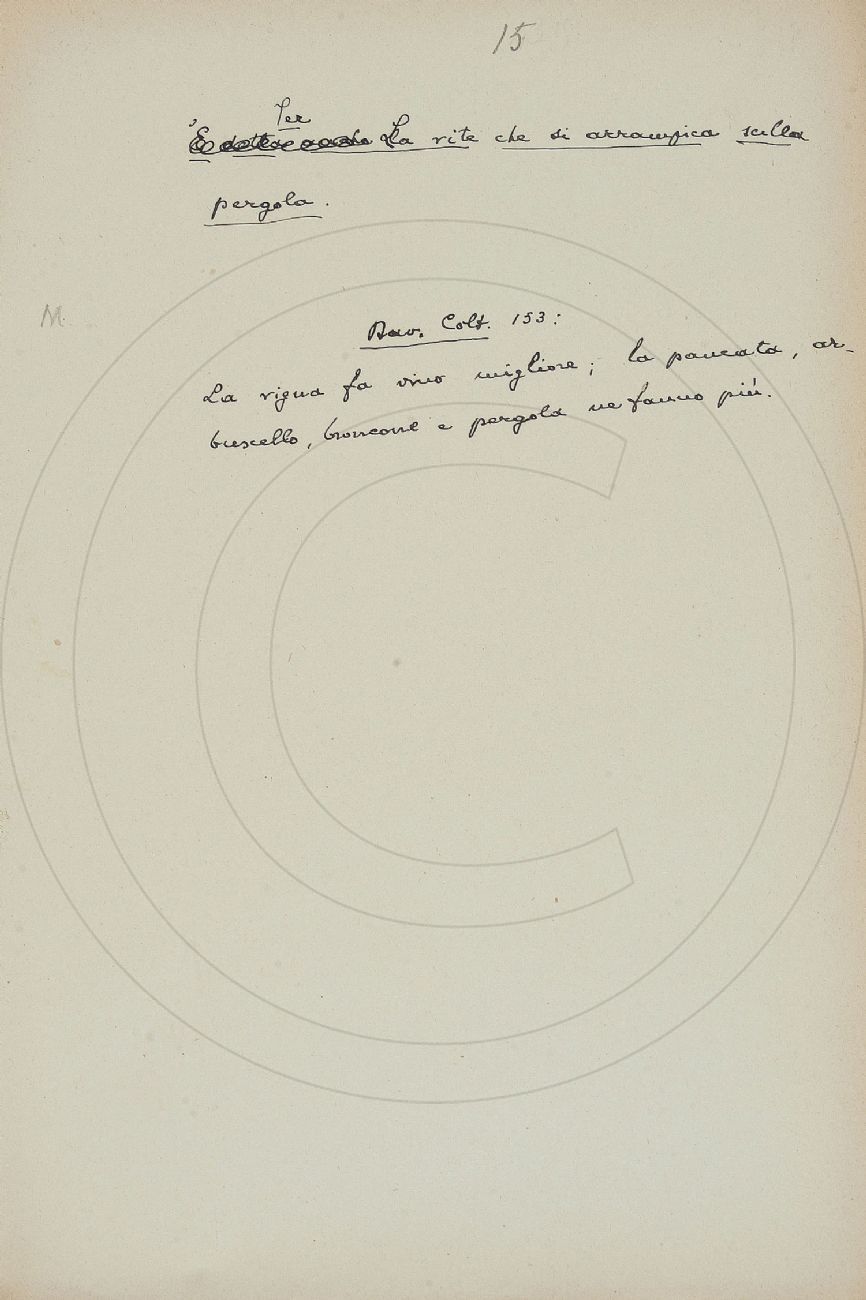 15
Per
È detto anche La vite che si arrampica sulla
pergola.
M.
Dav. Colt. 153:
La vigna fa vino migliore; la pancata, ar-
buscello, broncone e pergola ne fanno più.